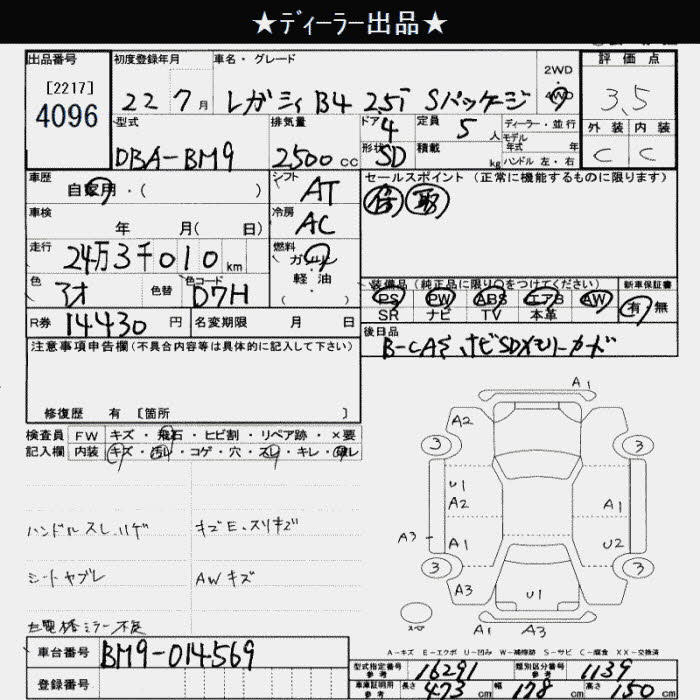 ★ディーラー出品★
出品番号 初度登録年月 車名・グレード 2WD 評価点
[2217]
4096
22 7月 レガシィ B4 2.5i Sパッケージ 4WD 3.5
型式 排気量 ドア 4 定員 5人 ディーラー・並行 外装 内装
モデル年式 年
DBA-BM9 2500cc 形状 SD 積載 kg ハンドル 左・右 C C
車歴 自家用・( ) シフト AT セールスポイント (正常に機能するものに限ります)
車検 年 月( 日) 冷房 AC
走行 24万3千010km 燃料 ガソリン
軽油
( ・ )
色 アオ 色替 色コード D7H
装備品 (純正品に限り○をつけてください) 新車保証書
PS PW ABS エアB AW 有・無
SR ナビ TV 本革
R券 14430円 名変期限 月 日
後日品
B-CAS ナビSDメモリーカード
注意事項申告欄(不具合内容等は具体的に記入して下さい)
修復歴 有 [箇所 ]
検査員 FW キズ・飛石・ヒビ割・リペア跡・×要
記入欄 内装 キズ・汚れ・コゲ・穴・スレ・キレ・破レ
ハンドルスレ、ハゲ キズE、スリキズ
シートヤブレ AWキズ
A1
A2
3 3
U1
A2 A1
A3 A1 U2
3 3
A3 U1
A1 A3
A-キズ E-エクボ U-凹み W-補修跡 S-サビ C-腐食 XX-交換済
車台番号 BM9-014569
登録番号
型式指定番号 参考 16291 類別区分番号 参考 1139
車庫証明用 参考 長さ 473cm 幅 178cm 高さ 150cm